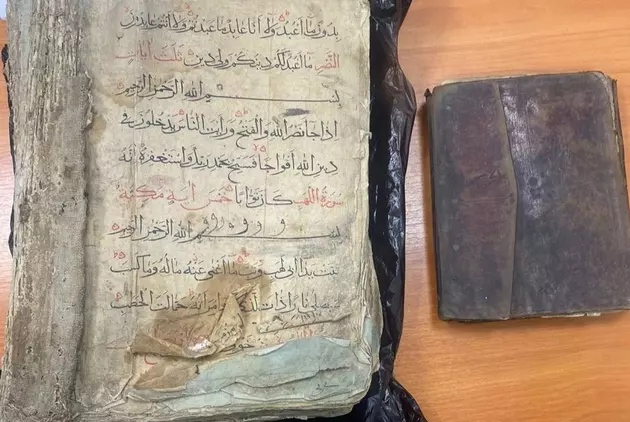 بدون ما اعبد ولا انا عابد ما عبدتم ولا انتم عابدون
النصر ما اعبد لكم دينكم ولي دين ثلث ايات
بسم الله الرحمن الرحيم
اذا جا نصر الله والفتح ورايت الناس يدخلون في
دين الله افواجا فسبح بحمد ربك واستغفره انه
سورة اللهب كان توابا خمس اية مكية
بسم الله الرحمن الرحيم
تبت يدا ابي لهب وتب ما اغنى عنه ماله وما كسب
سيصلى نارا ذات وامراته حمالت الحطب